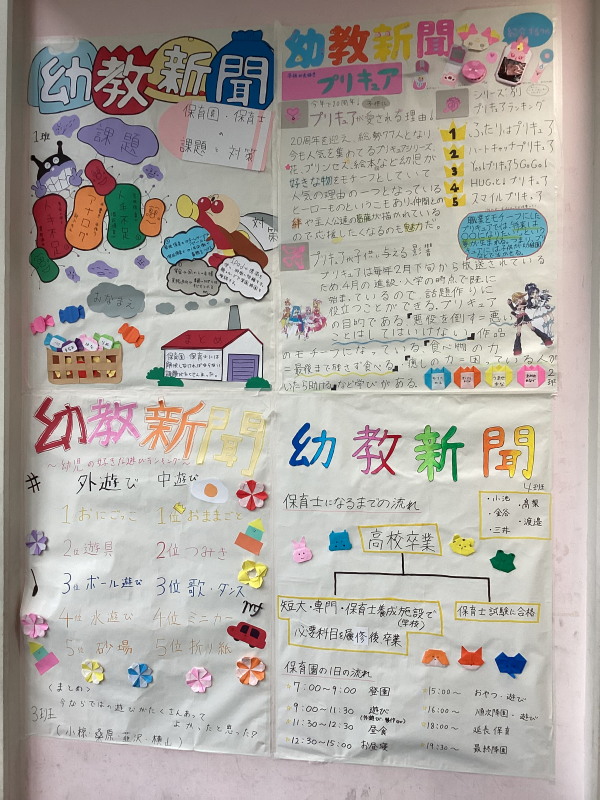 幼教新聞
1班
課題
保育園・保育士
の
課題と対策
人手不足
アナログ
人手不足
対策
おなまえ
まとめ
保育園、保育士には
幼教新聞
プリキュア
プリキュアが愛される理由
20周年を迎え、総勢77人となり
今もん気を集めてるプリキュアシリーズ。
花、プリンセス、絵本など幼児が
好きな物をモチーフとしていて
人気の理由の一つとなっている
ヒーローものということもあり、仲間との
絆や主人公達の葛藤が描かれている
ので応援したくなるのも魅力だ。
シリーズ別
プリキュアランキング
1 ふたりはプリキュア
2 ハートキャッチプリキュア
3 Yes!プリキュア5GoGo!
4 HUGっと!プリキュア
5 スマイルプリキュア
プリキュアが子供に与える影響
プリキュアは毎年2月下旬から放送されている
ため4月の進級・入学の時点で既に
始まっているので、話題作りに
役立つことができる。プリキュア
の目的である『悪役を倒す=悪い
ことはしてはいけない』、作品
のモチーフになっている『食べ物の力
=最後まで残さず食べる』『癒しの力=困っている人が
いたら助ける』など学びがある。
2班
幼教新聞
〜幼児の好きな遊びランキング〜
外遊び 中遊び
1位おにごっこ 1位おままごと
2位遊具 2位つみき
3位ボール遊び 3位歌・ダンス
4位水遊び 4位ミニカー
5位砂場 5位折り紙
mf
〈まとめ〉
今ならではの遊びがたくさんあって
よかったと思った?
3班
幼教新聞
4班
保育士になるまでの流れ
・小池
・高栗
・金谷
・渡邉
・三井
高校卒業
短大・専門・保育士養成施設で
(学校)
必要科目を履修後卒業
保育士試験に合格
保育園の1日の流れ
7:00〜9:00 登園
9:00〜11:30 遊び
11:30〜12:30 昼食
12:30〜15:00 お昼寝
15:00〜 おやつ・遊び
16:00〜 順次降園・遊び
18:00〜 延長保育
19:30〜 最終降園